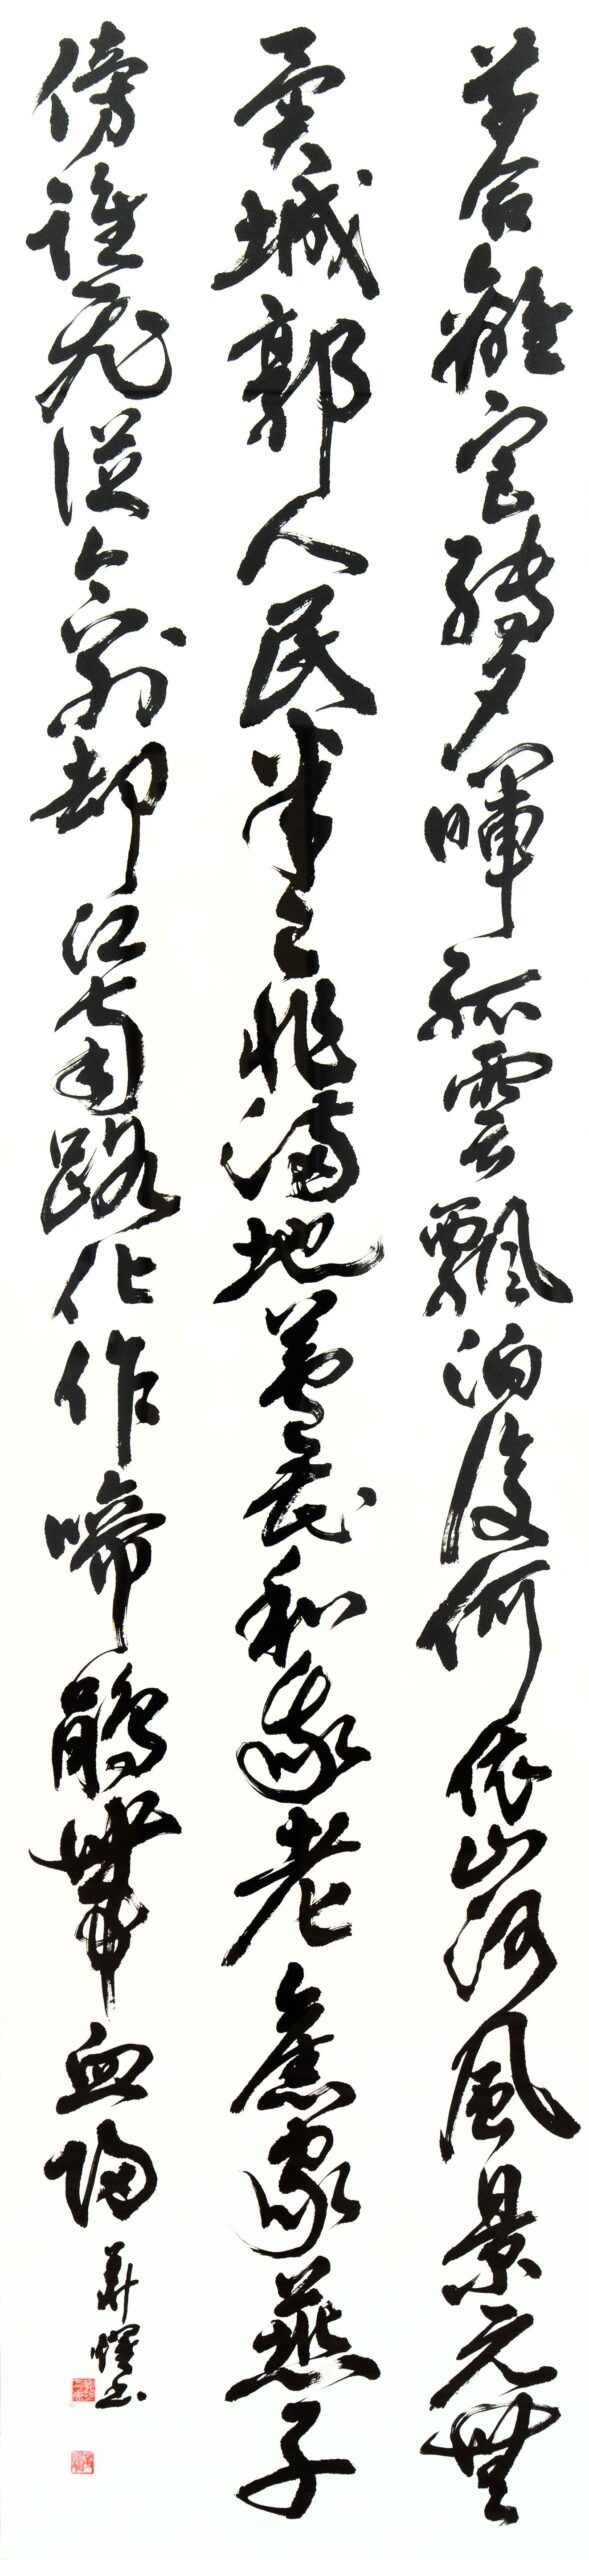 草合離宮轉夕暉孤雲飄泊復何依山河風景元無
異城郭人民半已非滿地蘆花和我老舊家燕子
傍誰飛從今別却江南路化作啼鵑帶血歸
書